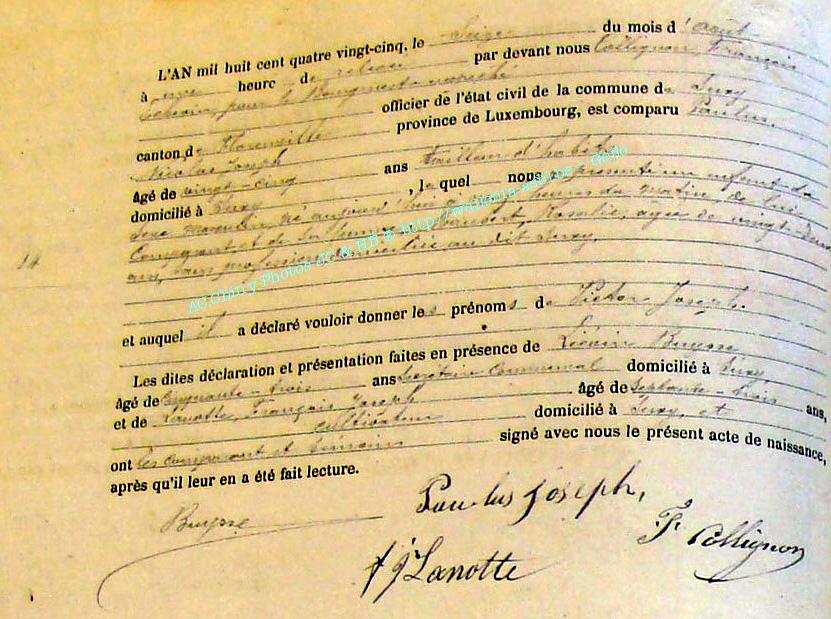 L'AN mil huit cent quatre vingt-cinq, le Seize du mois d'août
à onze heure de relevée par devant nous Collignon François
Echevin, pour le Bourgmestre empêché
officier de l'état civil de la commune de Suxy
canton de Florenville province de Luxembourg, est comparu Paulus
Nicolas Joseph
âgé de vingt-cinq ans tailleur d'habits
domicilié à Suxy, lequel nous a présenté un enfant du
sexe masculin, né aujourd'hui heures du matin, de lui
Comparant et de Rosalie, agée de vingt-deux
ans, sans profession domiciliée au dit Suxy.
14
et auquel il a déclaré vouloir donner les prénoms de Victor Joseph.
Les dites déclaration et présentation faites en présence de Liévin Buysse
âgé de cinquante-trois ans Secrétaire Communal domicilié à Suxy
et de Lanotte, François Joseph âgé de septante-trois ans,
cultivateur domicilié à Suxy, et
ont les comparant et témoins signé avec nous le présent acte de naissance,
après qu'il leur en a été fait lecture.
Buysse
Paulus Joseph,
F. Collignon
f j Lanotte
AC Chiny Photos JC & HB ©